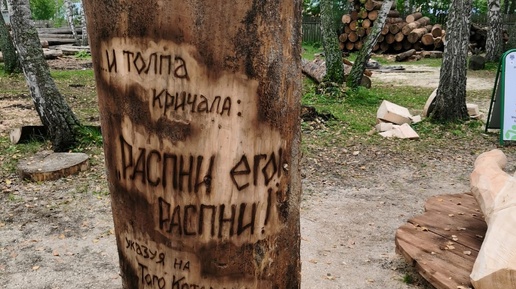 ..И ТОЛПА
КРИЧАЛА:
„РАСПНИ ЕГО!
РАСПНИ!
УКАЗУЯ НА
ТОГО